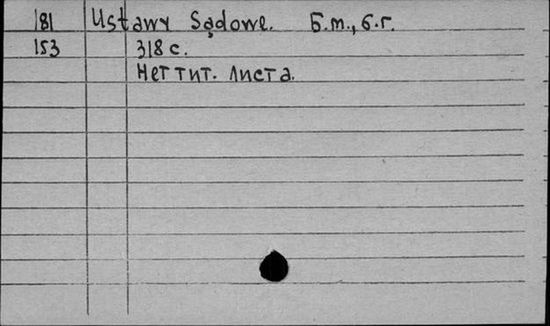 181 Ustawy Sądowe. Б.т., б.г.
153 318 с.
Нет тит. листа.